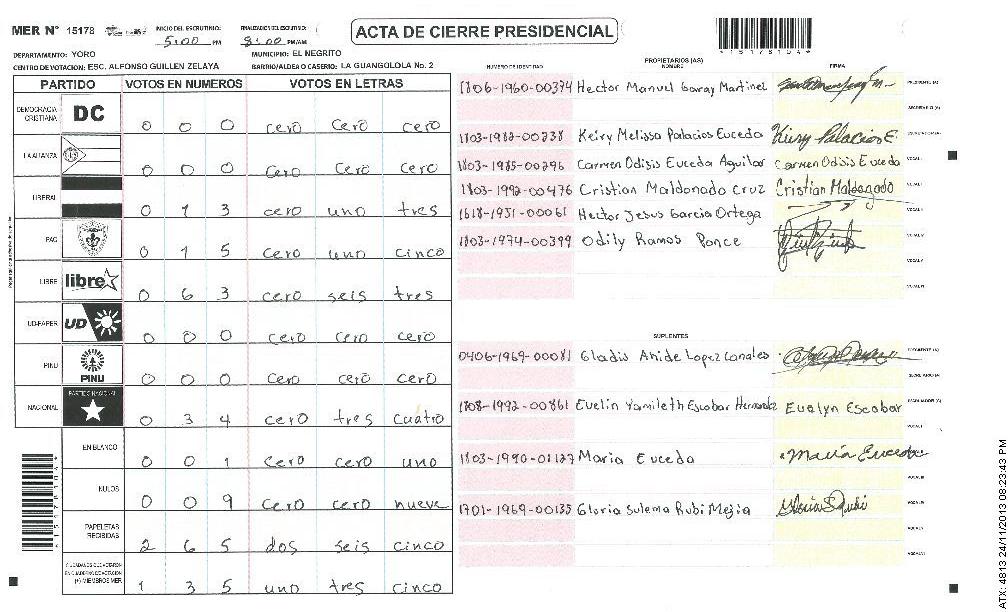 MER N° 15178
INICIO DEL ESCRUTINIO: 5:00 PM
FINALIZACION DEL ESCRUTINIO: 8:00 PM/AM
ACTA DE CIERRE PRESIDENCIAL
DEPARTAMENTO: YORO
MUNICIPIO: EL NEGRITO
CENTRO DE VOTACION: ESC. ALFONSO GUILLEN ZELAYA
BARRIO/ALDEA O CASERIO: LA GUANGOLOLA No. 2
PARTIDO VOTOS EN NUMEROS VOTOS EN LETRAS
DEMOCRACIA CRISTIANA DC 0 0 0 cero cero cero
LA ALIANZA 0 0 0 cero cero cero
LIBERAL 0 1 3 cero uno tres
PAC 0 1 5 cero uno cinco
LIBRE libre 0 6 3 cero seis tres
UD-FAPER UD 0 0 0 cero cero cero
PINU PINU 0 0 0 cero cero cero
NACIONAL PARTIDO NACIONAL 0 3 4 cero tres cuatro
EN BLANCO 0 0 1 cero cero uno
NULOS 0 0 9 cero cero nueve
PAPELETAS RECIBIDAS 2 6 5 dos seis cinco
CIUDADANOS QUE VOTARON EN CUADERNO DE VOTACION (+) MIEMBROS MER 1 3 5 uno tres cinco
PROPIETARIOS (AS)
NUMERO DE IDENTIDAD NOMBRE FIRMA
1806-1960-00374 Hector Manuel Garay Martinez PRESIDENTE (A)
SECRETARIO (A)
1803-1982-00238 Keiry Melissa Palacios Euceda Keiry Palacios E
1803-1985-00296 Carmen Odisis Euceda Aguilar Carmen Odisis Euceda VOCAL I
1803-1992-00476 Cristian Maldonado Cruz Cristian Maldonado
1618-1951-00061 Hector Jesus Garcia Ortega
1803-1974-00399 Odily Ramos Ponce
SUPLENTES
0406-1969-00081 Gladis Anide Lopez Canales
SECRETARIO (A)
1808-1992-00861 Evelin Yamileth Escobar Hernandez Evelyn Escobar
1803-1990-01127 Maria Euceda Maria Euceda
1701-1969-00135 Gloria Sulema Rubi Mejia Gloria S Rubi
ATX: 4813 24/11/2013 08:23:43 PM